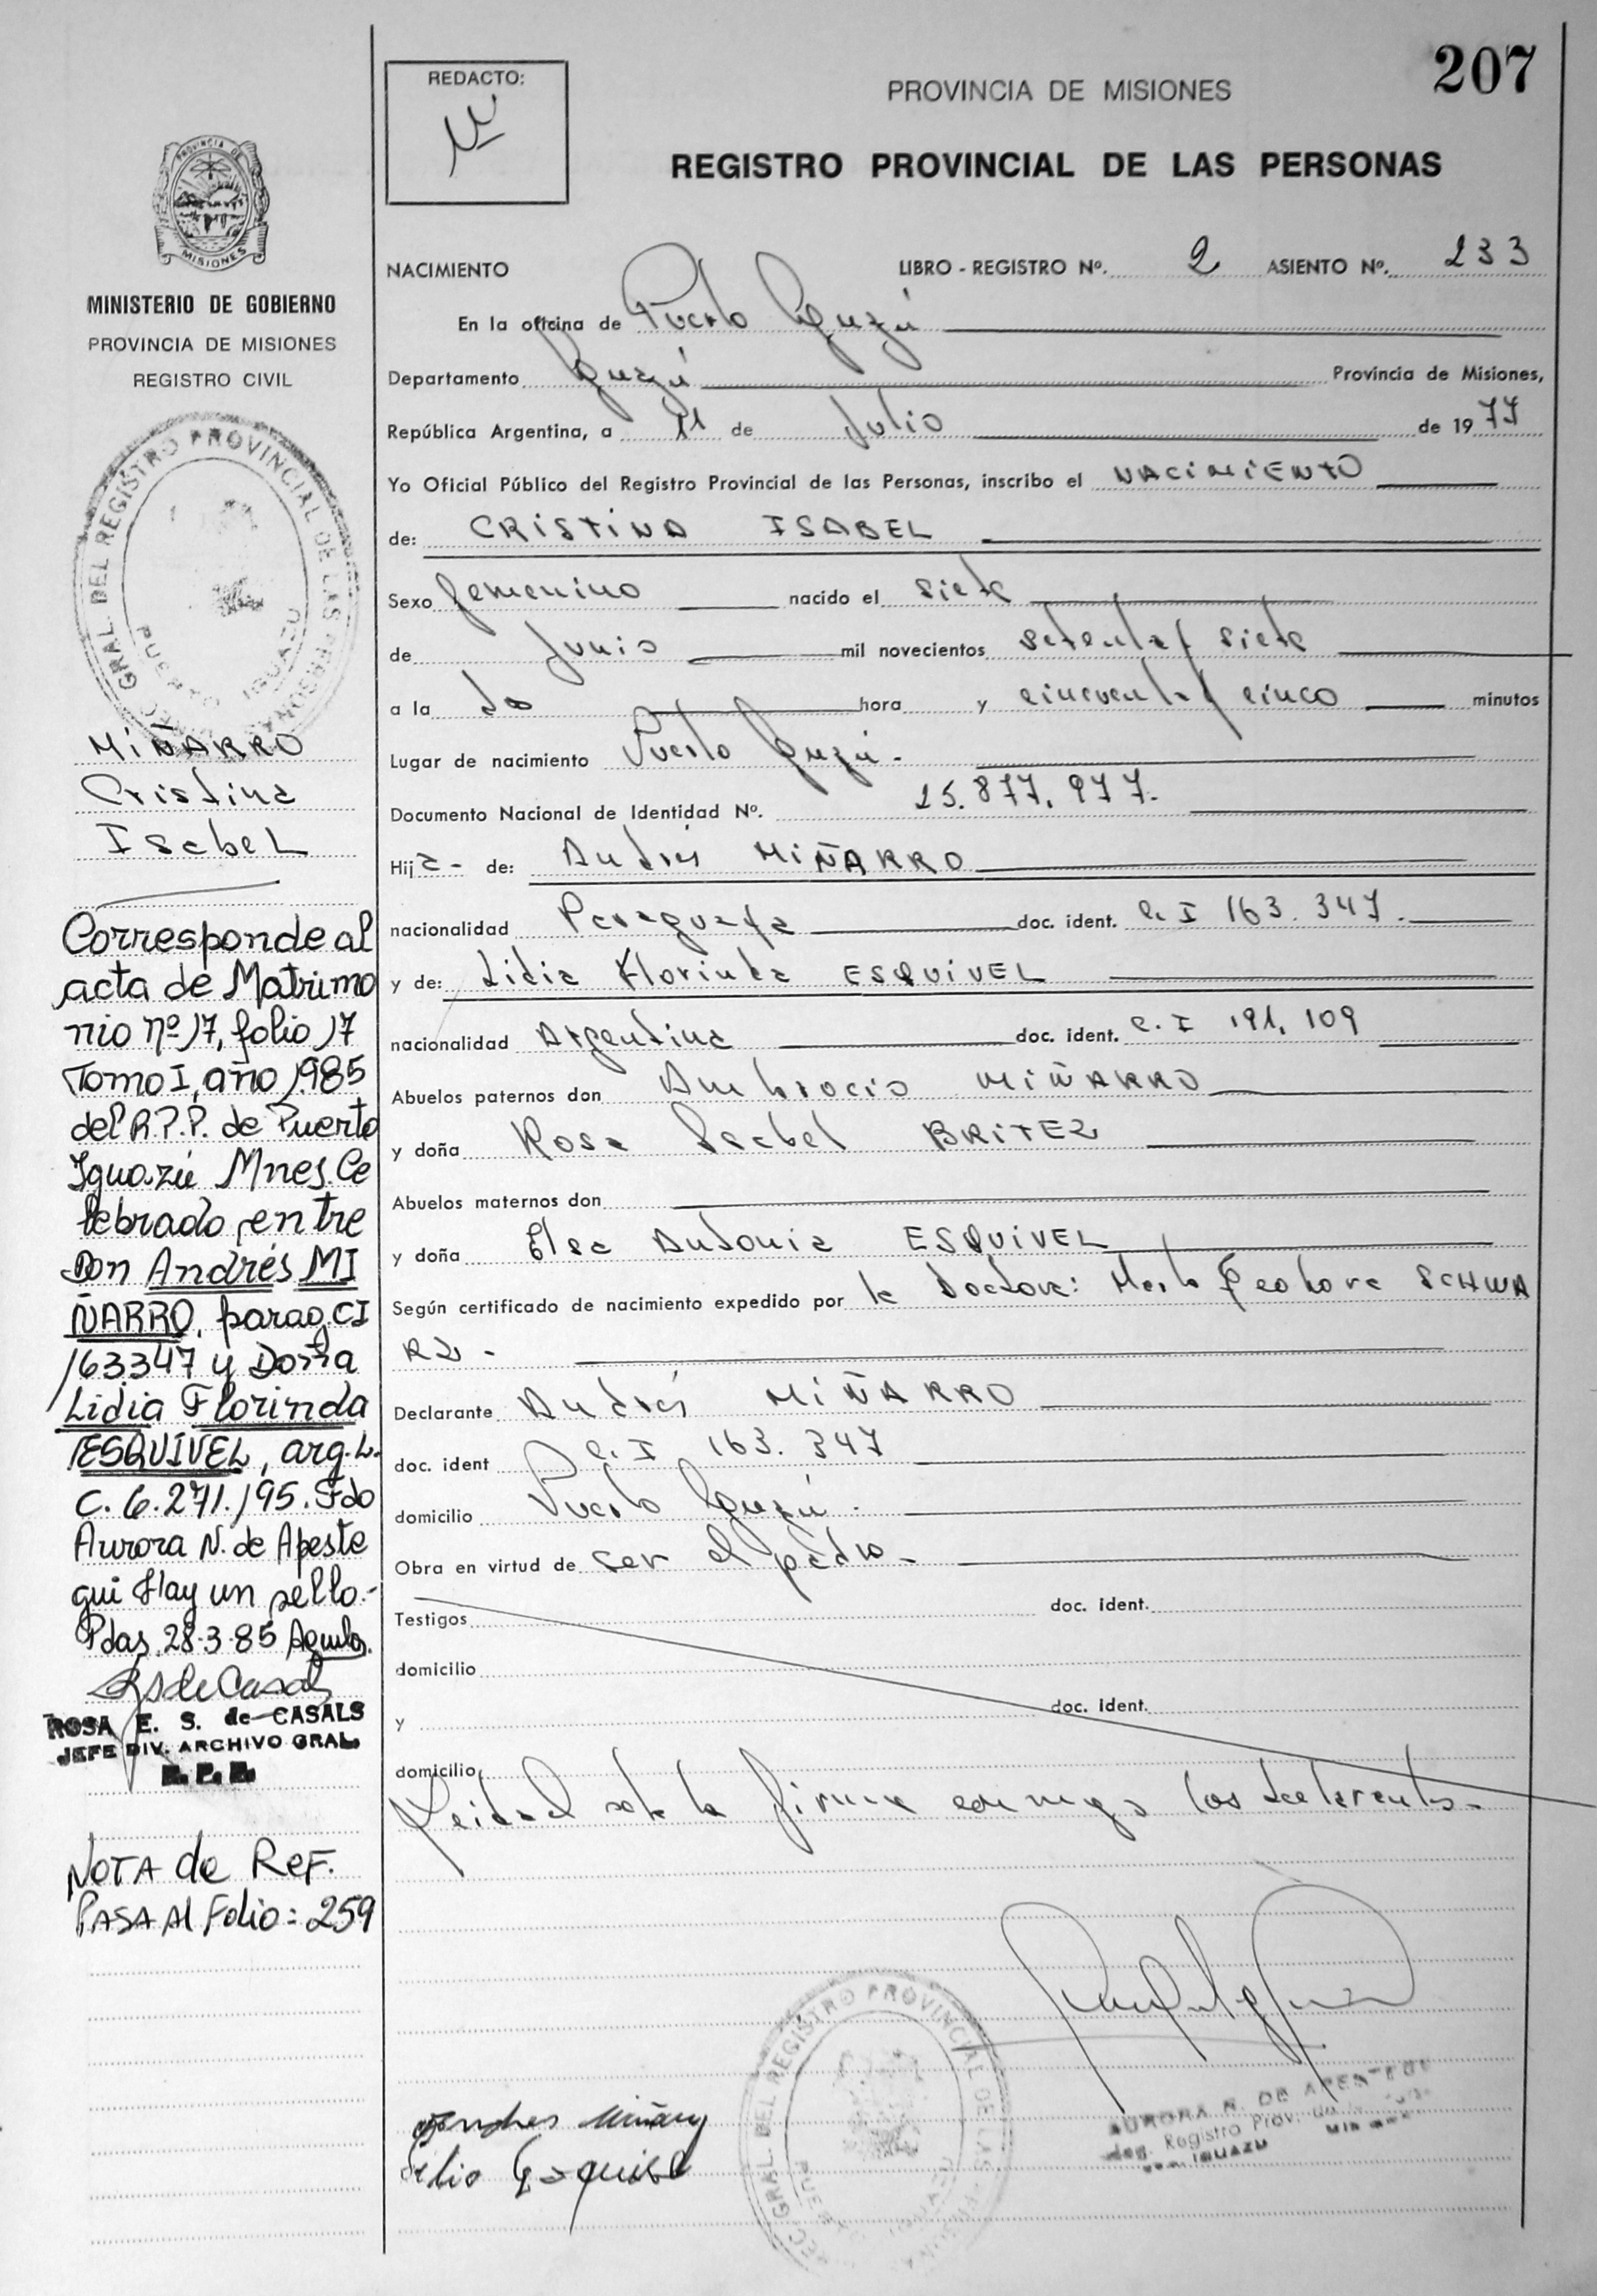 207
REDACTO:
PROVINCIA DE MISIONES
REGISTRO PROVINCIAL DE LAS PERSONAS
PROVINCIA DE
MISIONES
MINISTERIO DE GOBIERNO
PROVINCIA DE MISIONES
REGISTRO CIVIL
GRAL. DEL REGISTRO PROVINCIAL DE LAS PERSONAS
PUERTO IGUAZU
MIÑARRO
Cristina
Isabel
Corresponde al
acta de Matrimo
nio nº 17, folio 17
Tomo I, año 1985
del R.P.P. de Puerto
Iguazú Mnes. Ce
lebrado entre
Don Andrés MI
ÑARRO, parag, CI
163347 y Doña
Lidia Florinda
ESQUIVEL, arg. L.
C. 6.271.195. Fdo
Aurora N. de Apeste
gui Hay un sello.-
Pdas, 28-3-85
ROSA E. S. de CASALS
JEFE DIV. ARCHIVO GRAL.
NOTA de REF.
PASA Al Folio: 259
NACIMIENTO LIBRO - REGISTRO Nº. 2 ASIENTO Nº. 233
En la oficina de Puerto Iguazú
Departamento Iguazú Provincia de Misiones,
República Argentina, a 11 de Julio de 1977
Yo Oficial Público del Registro Provincial de las Personas, inscribo el NACIMIENTO
de: CRISTINA ISABEL
Sexo femenino nacido el siete
de Junio mil novecientos setenta y siete
a la hora y cincuenta y cinco minutos
Lugar de nacimiento Puerto Iguazú.
Documento Nacional de Identidad Nº. 25.877.977.
Hija- de: Andrés MIÑARRO
nacionalidad Paraguaya doc. ident. C. I 163.347.
y de: Lidia Florinda ESQUIVEL
nacionalidad Argentina doc. ident. C. I 191.109
Abuelos paternos don Ambrocio MIÑARRO
y doña Rosa Isabel BRITEZ
Abuelos maternos don
y doña Elsa Antonia ESQUIVEL
Según certificado de nacimiento expedido por la Doctora: SCHWA
RZ -
Declarante Andrés MIÑARRO
doc. ident C. I 163.347
domicilio Puerto Iguazú.
Obra en virtud de ser el padre-
Testigos doc. ident.
domicilio
y doc. ident.
domicilio
Leida el acta la firman conmigo los declarantes.
GRAL. DEL REGISTRO PROVINCIAL DE LAS
AURORA N. DE APESTEGUI
Registro Prov. de
IGUAZU